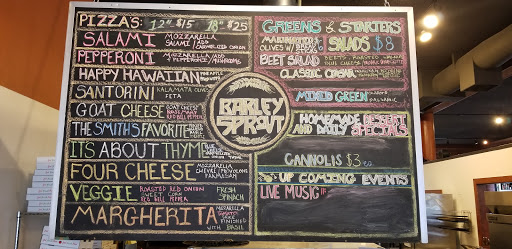 PIZZAS: 12" $15 18" $25
SALAMI MOZZARELLA
SALAMI / ADD
CARAMELIZED ONION
PEPPERONI MOZZARELLA / ADD
PEPPERONI / MUSHROOMS
HAPPY HAWAIIAN
SANTORINI KALAMATA OLIVES
FETA
GOAT CHEESE GOAT CHEESE
RED BELL PEPPER
THE SMITHS FAVORITE
IT'S ABOUT THYM
FOUR CHEESE MOZZARELLA
CHEVRE PROVOLONE
PARMESAN
VEGGIE ROASTED RED ONION
SWEET CORN
RED BELL PEPPER
FRESH
SPINACH
MARGHERITA MOZARELLA
TOMATO
FINISHED
WITH BASIL
BARLEY
SPROUT
GREENS & STARTERS
MARINATED
OLIVES W/
SALADS $8
BEET SALAD
CLASSIC CAESAR
MIXED GREEN
BALSAMIC
HOMEMADE DESSERT
AND DAILY SPECIALS
CANNOLIS $3 EA
UP COMING EVENTS
LIVE MUSIC